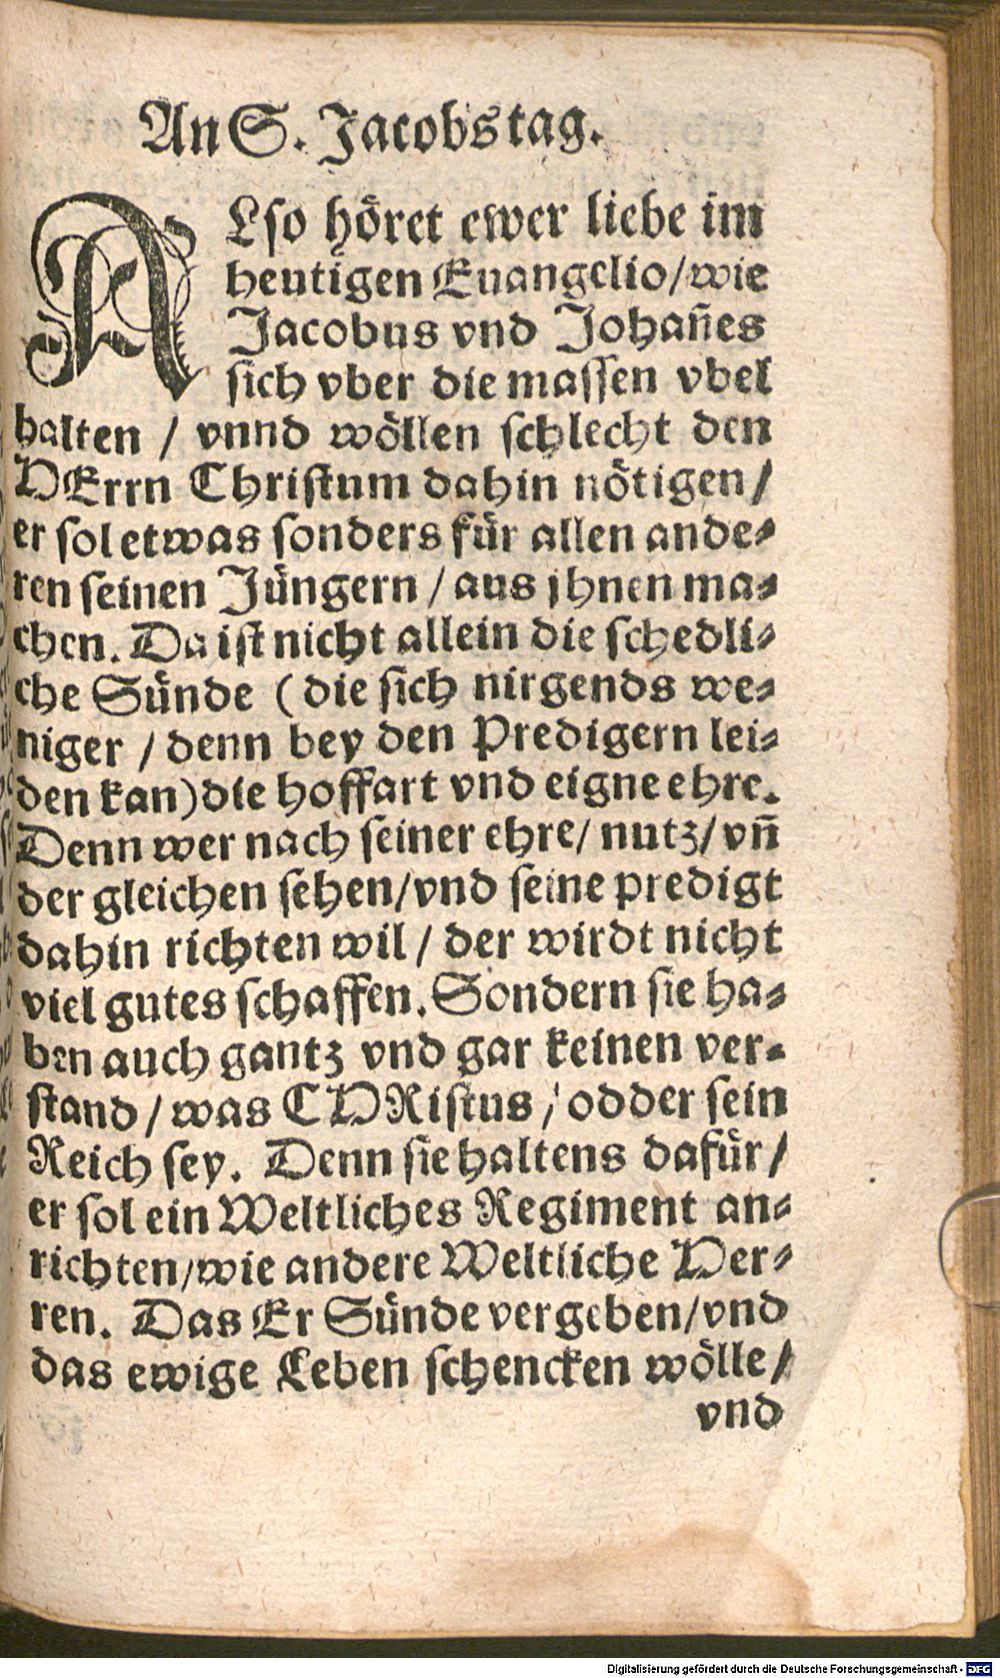 An S. Jacobs tag.
ALso höret ewer liebe im
heutigen Euangelio/wie
Jacobus vnd Johañes
sich vber die massen vbel
halten / vnnd wöllen schlecht den
HErrn Christum dahin nötigen/
er sol etwas sonders für allen ande-
ren seinen Jüngern / aus jhnen ma-
chen. Da ist nicht allein die schedli-
che Sünde (die sich nirgends we-
niger / denn bey den Predigern lei-
den kan) die hoffart vnd eigne ehre.
Denn wer nach seiner ehre/ nutz/ vñ
der gleichen sehen/vnd seine predigt
dahin richten wil / der wirdt nicht
viel gutes schaffen. Sondern sie ha-
ben auch gantz vnd gar keinen ver-
stand / was CHRistus / odder sein
Reich sey. Denn sie haltens dafür/
er sol ein Weltliches Regiment an-
richten/wie andere Weltliche Her-
ren. Das Er Sünde vergeben/vnd
das ewige Leben schencken wölle/
vnd
Digitalisierung gefördert durch die Deutsche Forschungsgemeinschaft - DFG